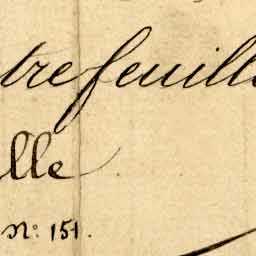 trefeuille
lle
N: 151.